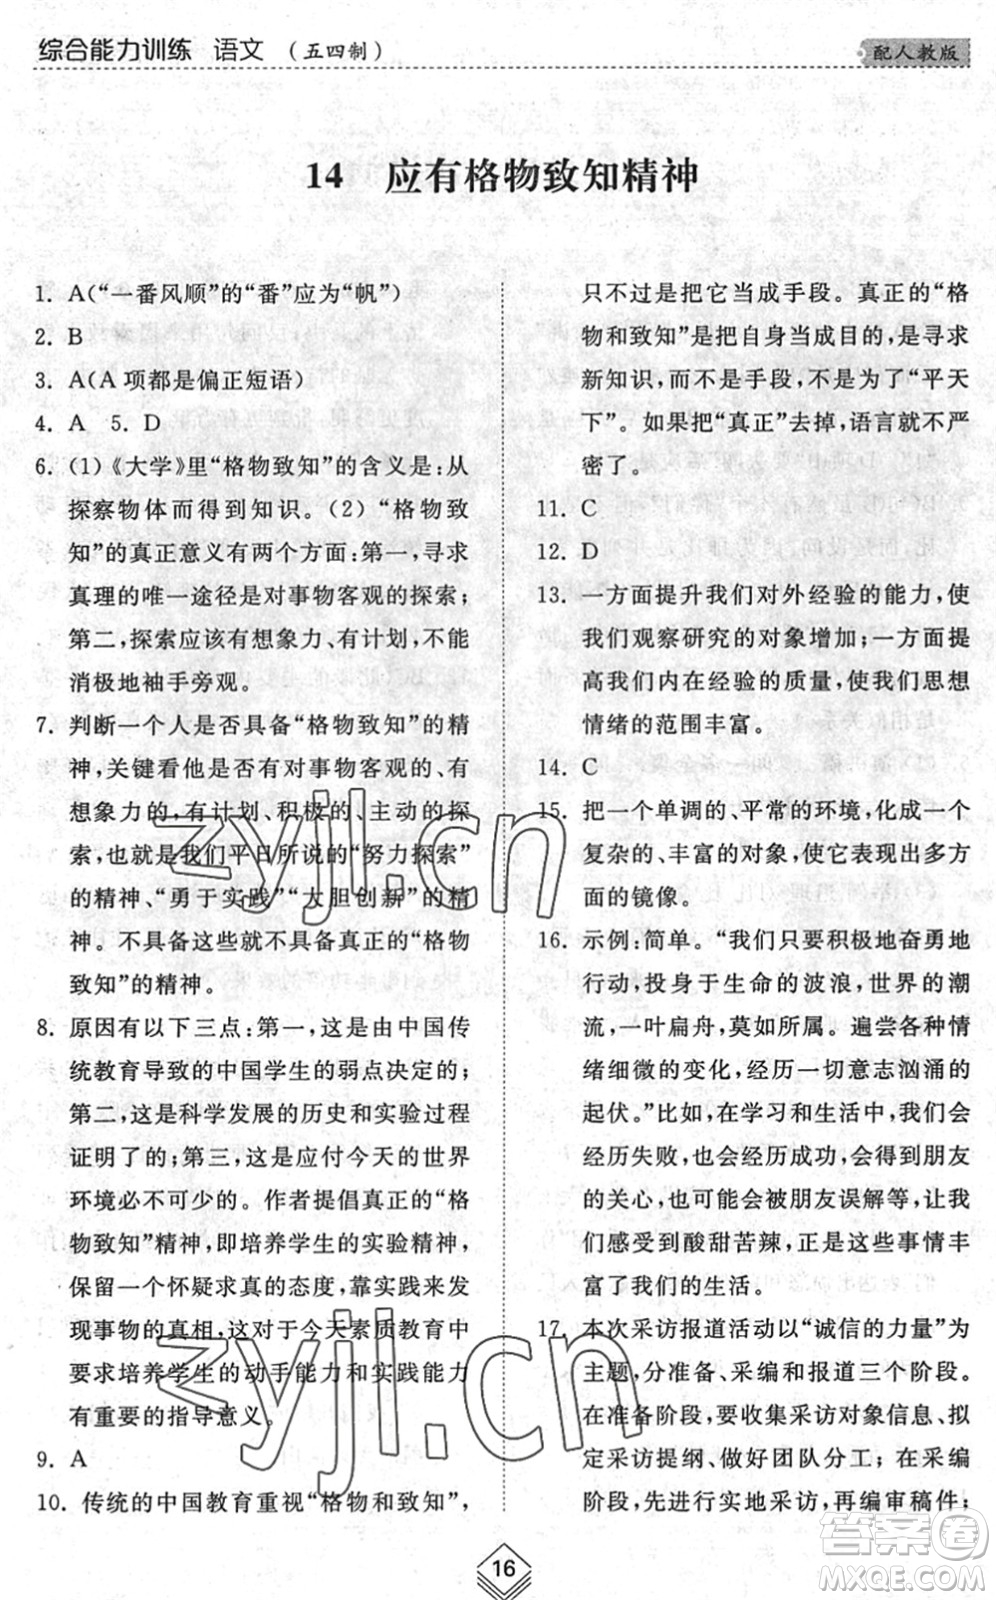 综合能力训练 语文 （五四制）
配人教版
14 应有格物致知精神
1. A(“一番风顺”的“番”应为“帆”)
2. B
3. A(A 项都是偏正短语)
4. A 5. D
6. (1)《大学》里“格物致知”的含义是:从
探察物体而得到知识。(2)“格物致
知”的真正意义有两个方面:第一,寻求
真理的唯一途径是对事物客观的探索;
第二,探索应该有想象力、有计划,不能
消极地袖手旁观。
7. 判断一个人是否具备“格物致知”的精
神,关键看他是否有对事物客观的、有
想象力的、有计划、积极的、主动的探
索,也就是我们平日所说的“努力探索”
的精神、“勇于实践”“大胆创新”的精
神。不具备这些就不具备真正的“格物
致知”的精神。
8. 原因有以下三点:第一,这是由中国传
统教育导致的中国学生的弱点决定的;
第二,这是科学发展的历史和实验过程
证明了的;第三,这是应付今天的世界
环境必不可少的。作者提倡真正的“格
物致知”精神,即培养学生的实验精神,
保留一个怀疑求真的态度,靠实践来发
现事物的真相,这对于今天素质教育中
要求培养学生的动手能力和实践能力
有重要的指导意义。
9. A
10. 传统的中国教育重视“格物和致知”,
只不过是把它当成手段。真正的“格
物和致知”是把自身当成目的,是寻求
新知识,而不是手段,不是为了“平天
下”。如果把“真正”去掉,语言就不严
密了。
11. C
12. D
13. 一方面提升我们对外经验的能力,使
我们观察研究的对象增加;一方面提
高我们内在经验的质量,使我们思想
情绪的范围丰富。
14. C
15. 把一个单调的、平常的环境,化成一个
复杂的、丰富的对象,使它表现出多方
面的镜像。
16. 示例:简单。“我们只要积极地奋勇地
行动,投身于生命的波浪,世界的潮
流,一叶扁舟,莫如所属。遍尝各种情
绪细微的变化,经历一切意志汹涌的
起伏。”比如,在学习和生活中,我们会
经历失败,也会经历成功,会得到朋友
的关心,也可能会被朋友误解等,让我
们感受到酸甜苦辣,正是这些事情丰
富了我们的生活。
17. 本次采访报道活动以“诚信的力量”为
主题,分准备、采编和报道三个阶段。
在准备阶段,要收集采访对象信息、拟
定采访提纲、做好团队分工;在采编
阶段,要先进行实地采访,再编审稿件;
zyjl.cn
zyjl.cn
16
答案圈
MXQE.COM